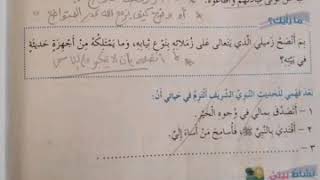 ما رأيك؟
بم أنصح زميلي الذي يتعالى على زملائه بنوع ثيابه، وما يمتلكه من أجهزة حديثة
في بيته؟
أنصحه بأن لا
بعد فهمي للحديث النبوي الشريف ألتزم في حياتي أن:
١ - أتصدق بمالي في وجوه الخير.
٢ - أقتدي بالنبي ﷺ، فأسامح من أساء إلي.
٣ -
نشاط بيتي